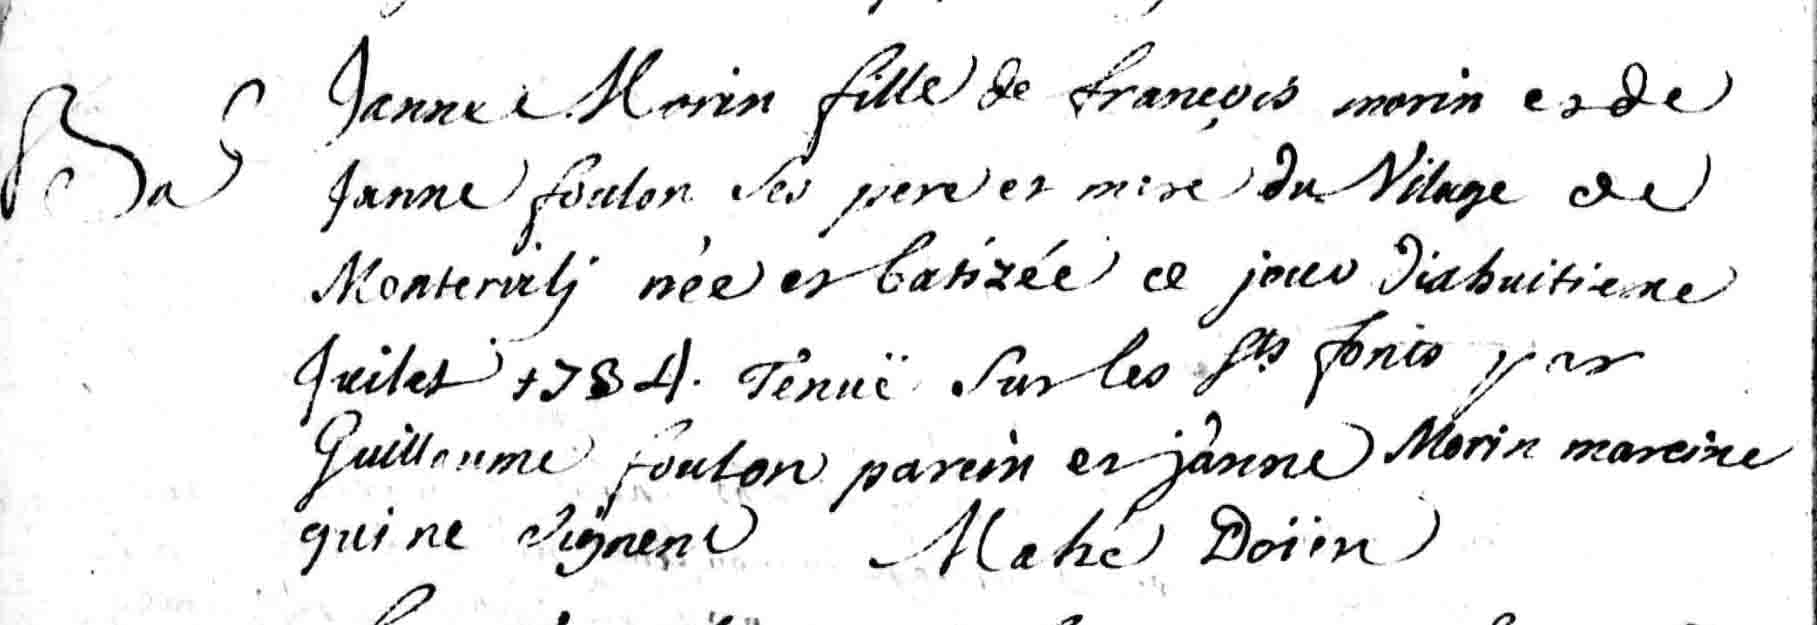 Ba Janne Morin fille de françois morin et de
Janne foulon ses pere et mere du Vilage de
Montervily née et batizée ce jour diahuitieme
Juilet 1734. Tenuë sur les Sts fonts par
Guillaume foulon parein et janne Morin mareine
qui ne signent Mahé Doïen